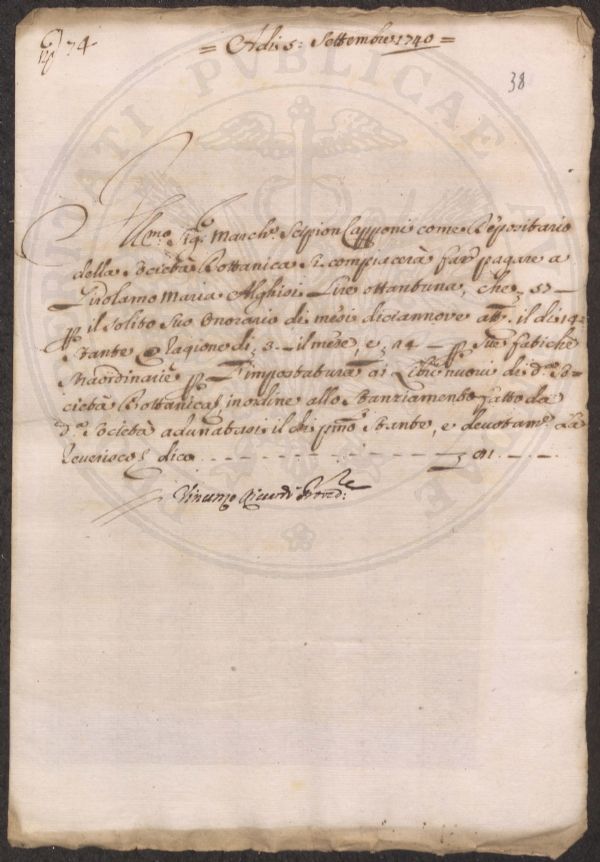 74
= Adi 5: Settembre 1740 =
38
Ill.mo Sig.r March.e Scipion Capponi come Depositario
della Società Bottanica Si compiacerà far pagare a
Girolamo Maria Alghisi Lire ottantuna, che 57 –
p il Solito Suo Onorario di mesi diciannove att. il di 14
Stante a ragione di 3 – il mese, e 24 – p Sue fatiche
straordinarie p l'impostatura ai Libri nuovi de d.a So-
cietà Bottanica, in ordine allo Stanziamento fatto da
d.a Società adunatasi il di pmo Stante, e devotam.e La
reverisco dico
Provved.re
PVBLICAE